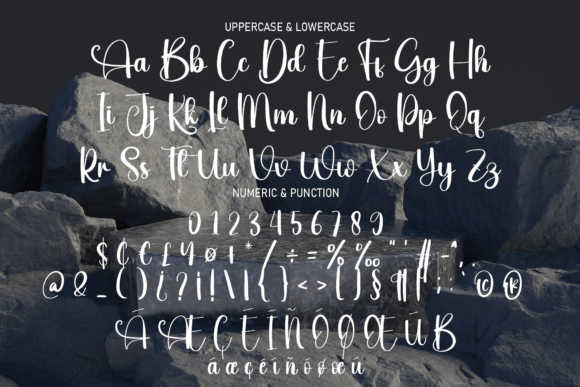 UPPERCASE & LOWERCASE
Aa Bb Cc Dd Ee Ff Gg Hh
Ii Jj Kk Ll Mm Nn Oo Pp Qq
Rr Ss Tt Uu Vv Ww Xx Yy Zz
NUMERIC & PUNCTION
0 1 2 3 4 5 6 7 8 9
$ ¢ € £ ¥ ø ! * / ÷ = % ‰ " ' # - ^
@ & _ ( ) ¿ ? ¡ ! \ | { } < > [ ] § ¶ ƒ ; : © ®
Á Æ Ç É Í Ñ Ó Ø Œ Ú ß
á æ ç é í ñ ó ø œ ú